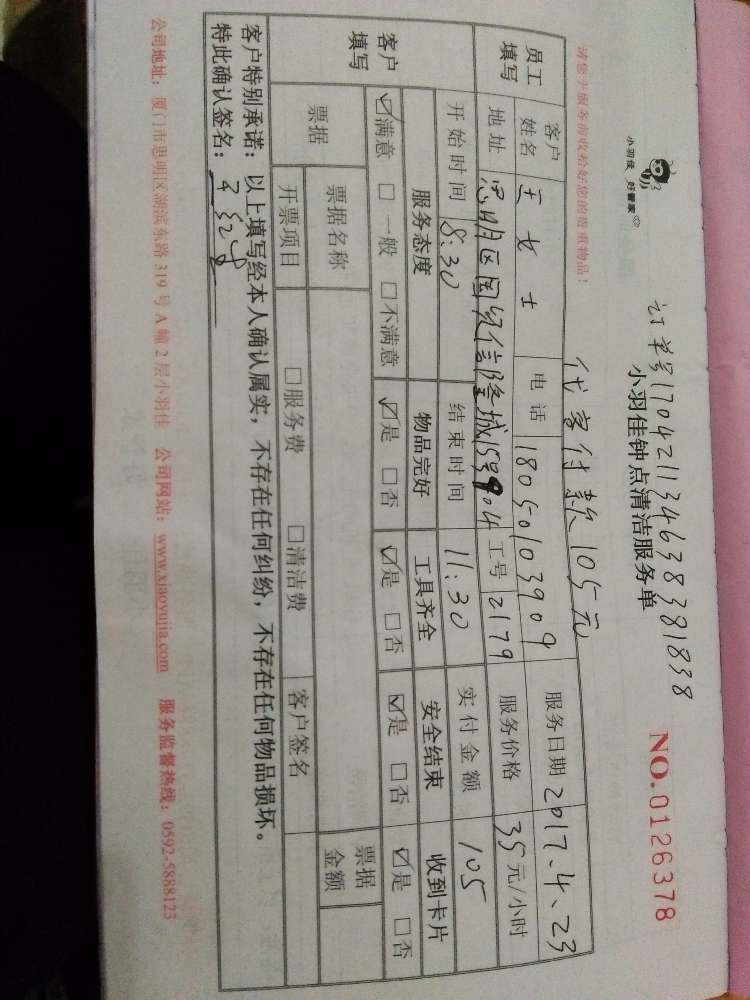 小羽佳 好管家
订单号17042113463838​1838
小羽佳钟点清洁服务单
NO.0126378
请您于服务前收捡好您的贵重物品！
代客付款105元
员工填写 客户姓名 王女士 电话 18050103909 服务日期 2017.4.23
地址 思明区国贸信隆城15号904 工号 2179 服务价格 35元/小时
开始时间 8:30 结束时间 11:30 实付金额 105
客户填写 服务态度 物品完好 工具齐全 安全结束 收到卡片
☑满意 □一般 □不满意 ☑是 □否 ☑是 □否 ☑是 □否 ☑是 □否
票据 票据名称 票据金额
开票项目 □服务费 □清洁费 客户签名
客户特别承诺：以上填写经本人确认属实，不存在任何纠纷，不存在任何物品损坏。
特此确认签名：
公司地址：厦门市思明区湖滨东路319号A幢2层小羽佳 公司网站：www.xiaoyujia.com 服务监督热线：0592-5888123